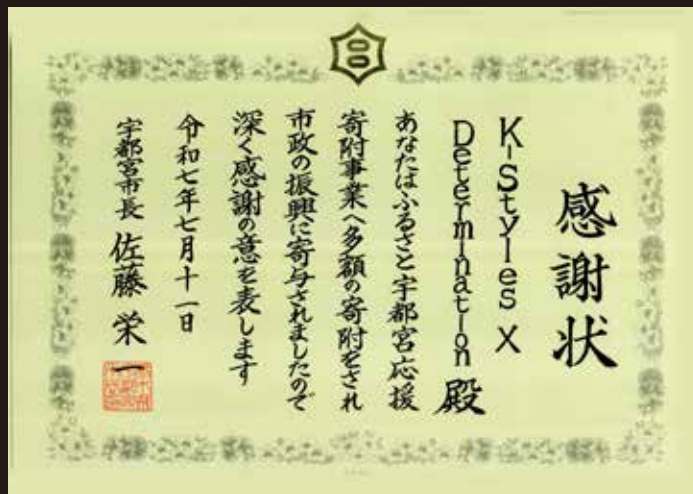 感謝状
K-Styles X
Determination 殿
あなたはふるさと宇都宮応援
寄附事業へ多額の寄附をされ
市政の振興に寄与されましたので
深く感謝の意を表します
令和七年七月十一日
宇都宮市長 佐藤栄一